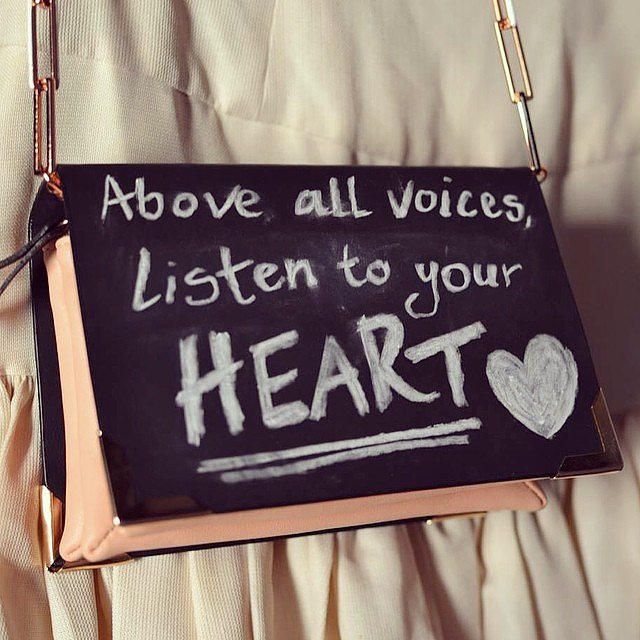 Above all voices,
Listen to your
HEART